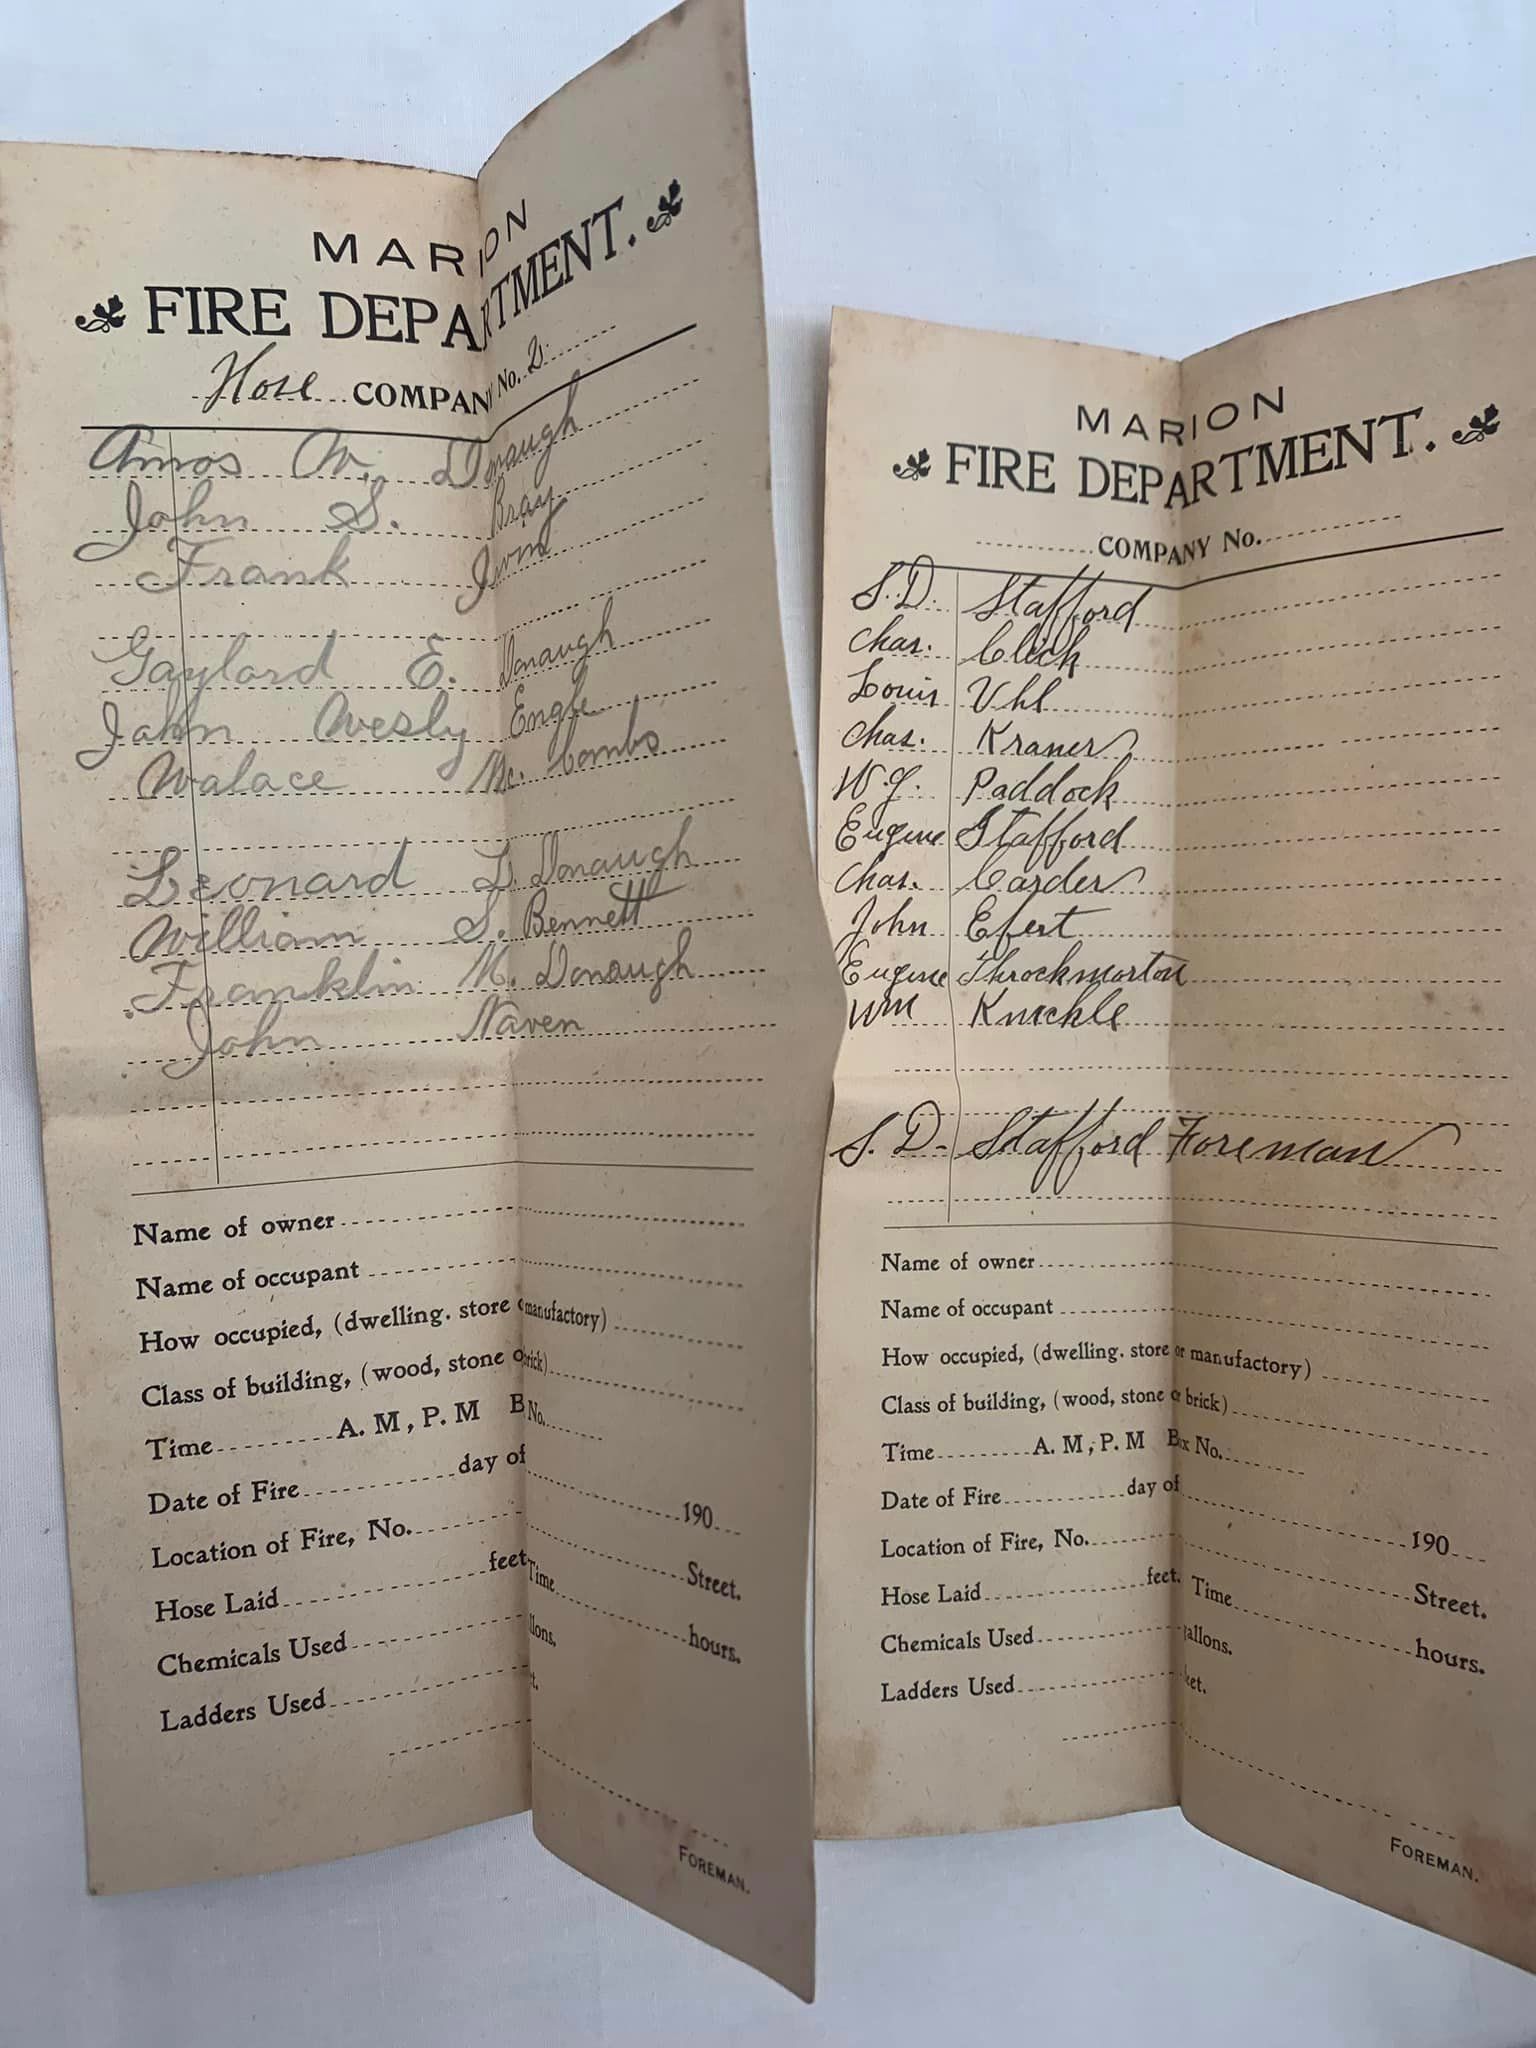 MARION
FIRE DEPARTMENT.
Hose COMPANY No. 2
Amos W. Donaugh
John S. Bray
Frank
Gaylord E. Donaugh
John Wesly Engle
Walace Mc. Combs
Leonard L. Donaugh
William S. Bennett
Franklin M. Donaugh
John Naven
Name of owner
Name of occupant
How occupied, (dwelling. store or manufactory)
Class of building, (wood, stone or brick)
Time A. M, P. M B No.
Date of Fire day of 190
Location of Fire, No. Street.
Hose Laid feet Time hours.
Chemicals Used llons.
Ladders Used t.
FOREMAN.
MARION
FIRE DEPARTMENT.
COMPANY No.
S. D. Stafford
Chas. Click
Louis Uhl
Chas. Kraner
W. J. Paddock
Eugene Stafford
Chas. Carder
John Efert
Eugene Throckmorton
Wm Knickle
S. D. Stafford Foreman
Name of owner
Name of occupant
How occupied, (dwelling. store or manufactory)
Class of building, (wood, stone or brick)
Time A. M, P. M Box No.
Date of Fire day of 190
Location of Fire, No. Street.
Hose Laid feet. Time hours.
Chemicals Used gallons.
Ladders Used feet.
FOREMAN.